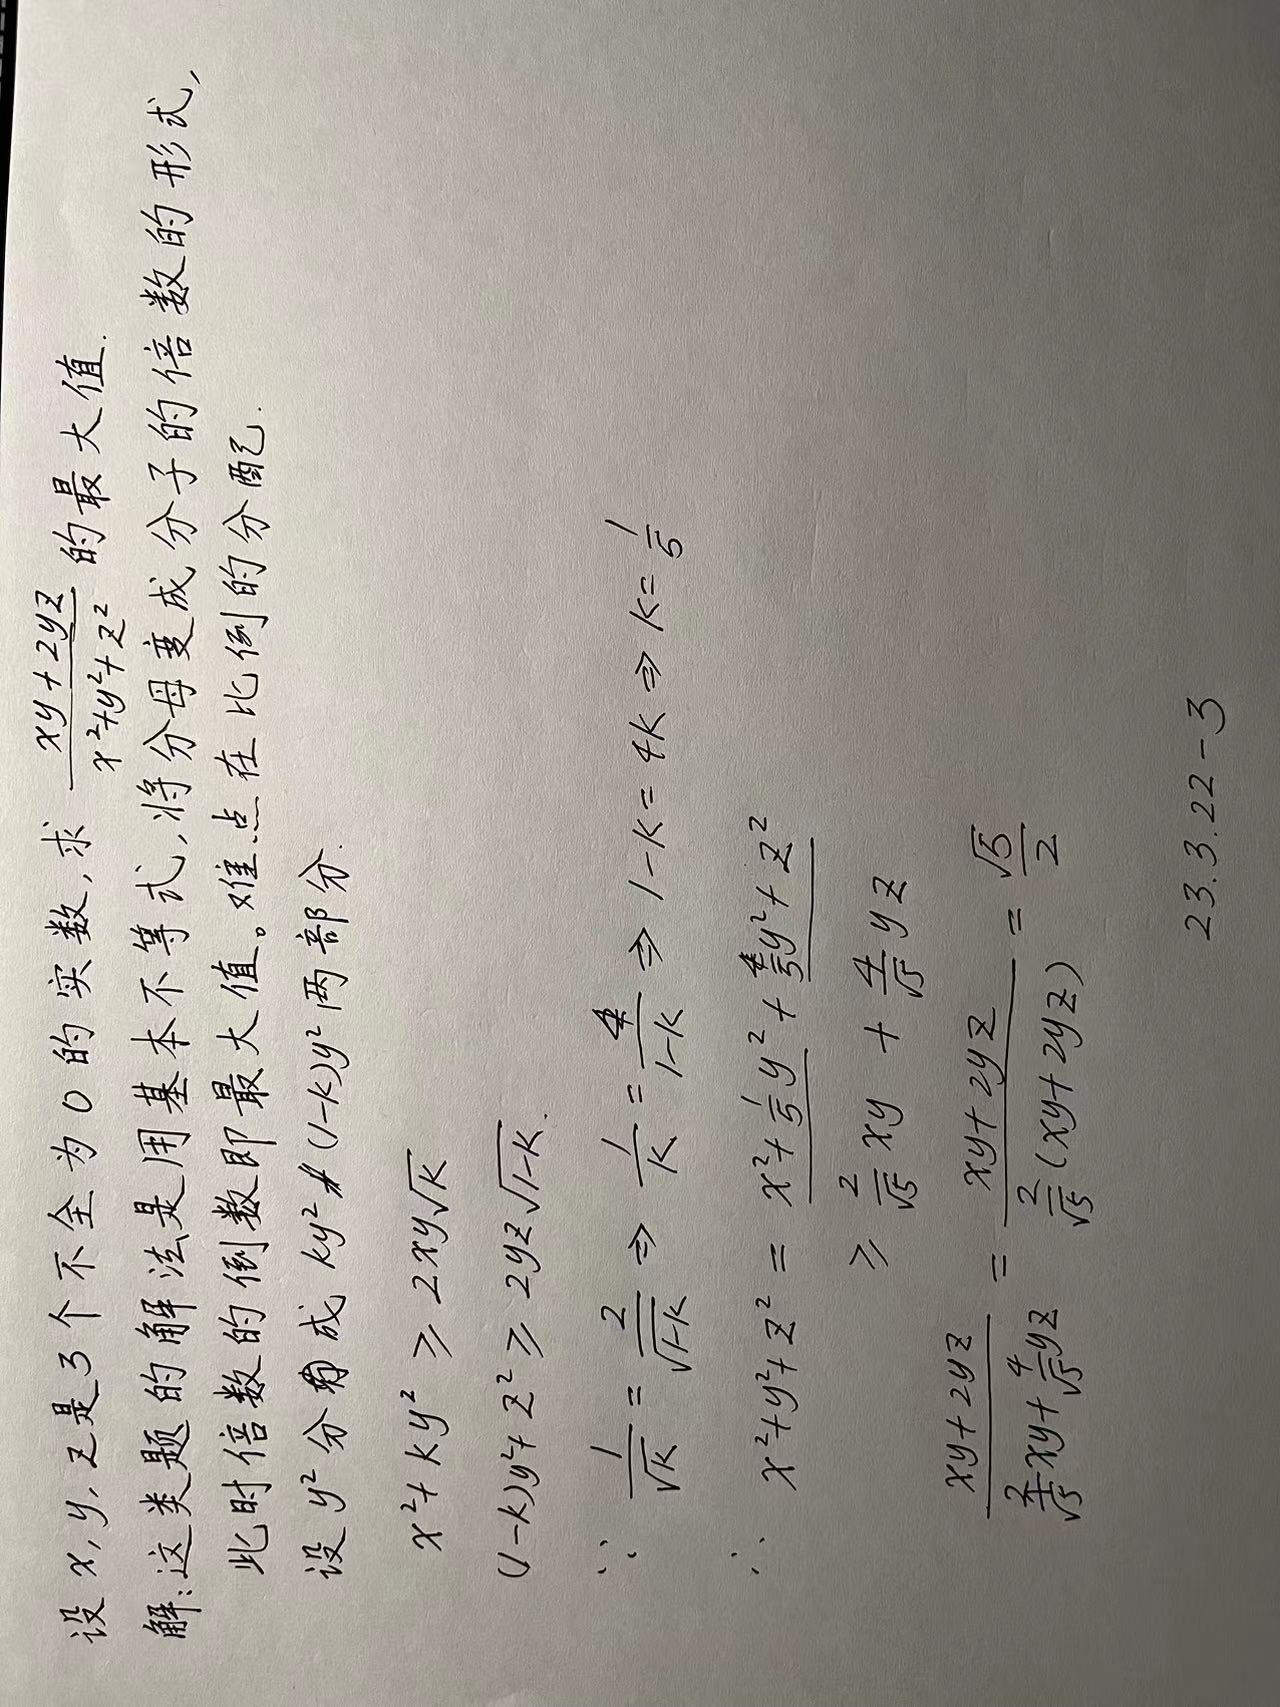 设 x, y, z是3个不全为0的实数,求 (xy+2yz)/(x²+y²+z²) 的最大值.
解:这类题的解法是用基本不等式,将分母变成分子的倍数的形式,
此时倍数的倒数即最大值。难点在比例的分配.
设 y² 分成 ky² (1-k)y² 两部分.
x²+ky² ≥ 2xy√k
(1-k)y²+z² ≥ 2yz√(1-k).
∵ 1/√k = 2/√(1-k) ⇒ 1/k = 4/(1-k) ⇒ 1-k = 4k ⇒ k = 1/5
∴ x²+y²+z² = x²+1/5 y² + 4/5 y²+z²
≥ 2/√5 xy + 4/√5 yz
(xy+2yz)/(2/√5 xy + 4/√5 yz) = (xy+2yz)/(2/√5 (xy+2yz)) = √5/2
23.3.22-3